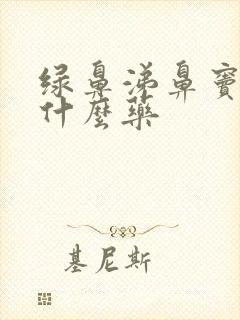 绿鼻涕鼻窦
什麼药
基尼斯